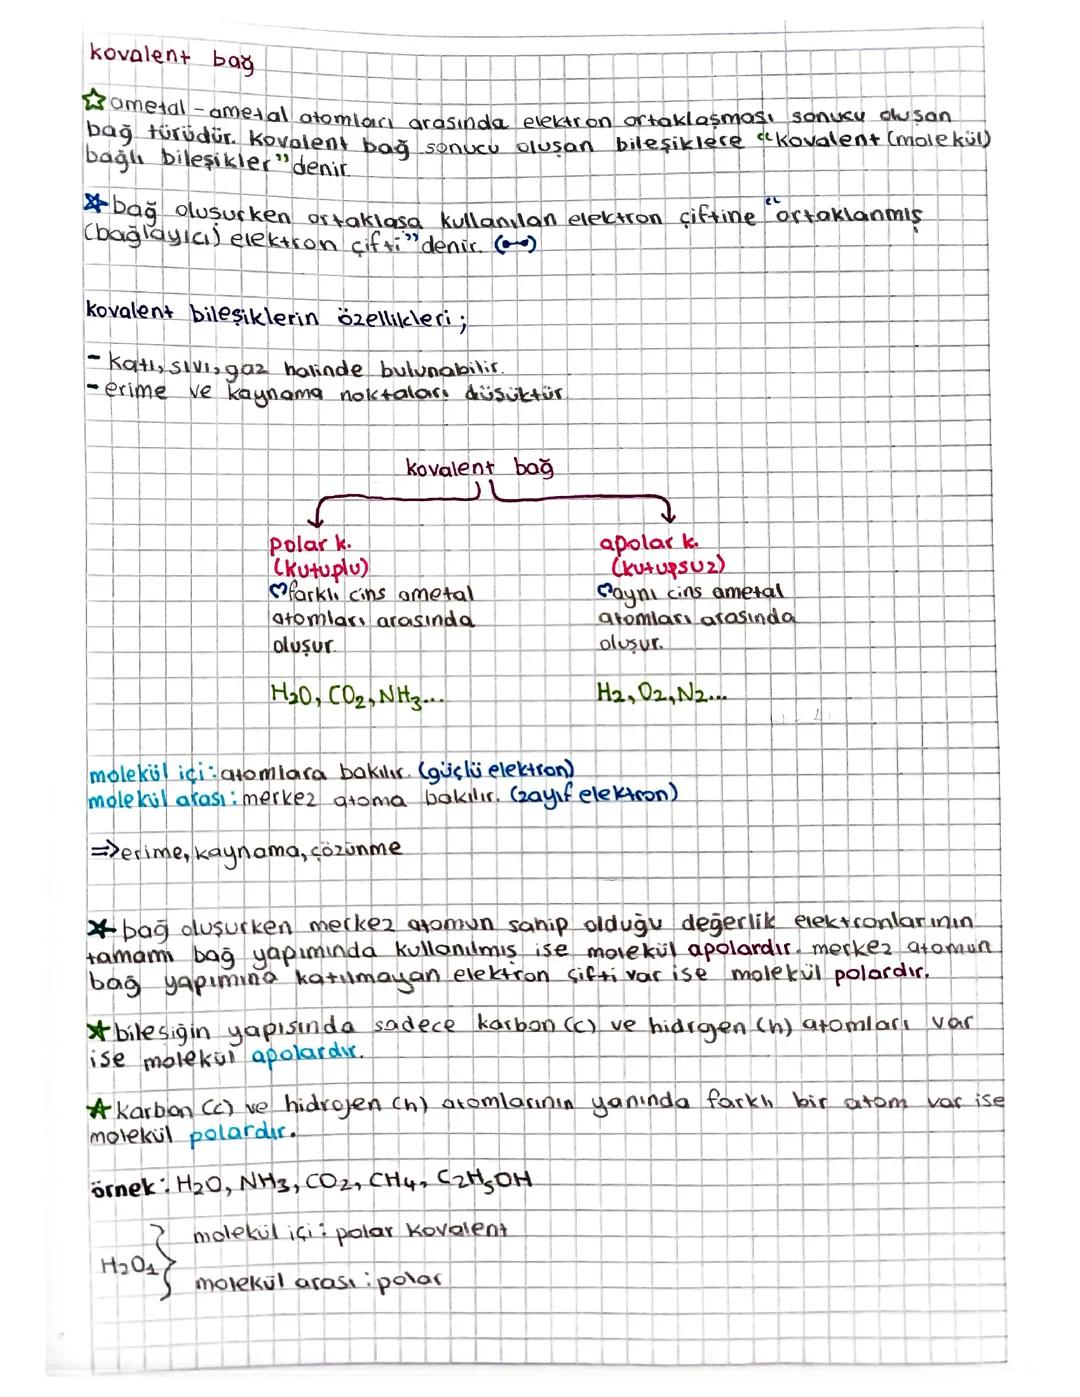 kovalent bağ
ametal - ametal atomları arasında elektron ortaklaşması sonucu oluşan
bağ türüdür. Kovalent bağ sonucu oluşan bileşiklere "kovalent (molekül)
bağlı bileşikler" denir.
bağ oluşurken ortaklaşa kullanılan elektron çiftine "ortaklanmış
(bağlayıcı) elektron çifti" denir.
kovalent bileşiklerin özellikleri;
- katı, sıvı, gaz halinde bulunabilir.
- erime ve kaynama noktaları düşüktür.
kovalent bağ
polar k.
(kutuplu)
farklı cins ametal
atomları arasında
oluşur.
H2O, CO2, NH3...
apolar k.
(kutupsuz)
aynı cins ametal
atomları arasında
oluşur.
H2, O2, N2...
molekül içi: atomlara bakılır. (güçlü elektron)
molekül arası: merkez atoma bakılır. (zayıf elektron)
=> erime, kaynama, çözünme
bağ oluşurken merkez atomun sahip olduğu değerlik elektronlarının
tamamı bağ yapımında kullanılmış ise molekül apolardır. merkez atomun
bağ yapımına katılmayan elektron çifti var ise molekül polardır.
bileşiğin yapısında sadece karbon (c) ve hidrgen (h) atomları var
ise molekül apolardır.
karbon (c) ve hidrojen (h) atomlarının yanında farklı bir atom var ise
molekül polardır.
örnek: H2O, NH3, CO2, CH4, C2H5OH
H2O1
molekül içi: polar kovalent
molekül arası: polar